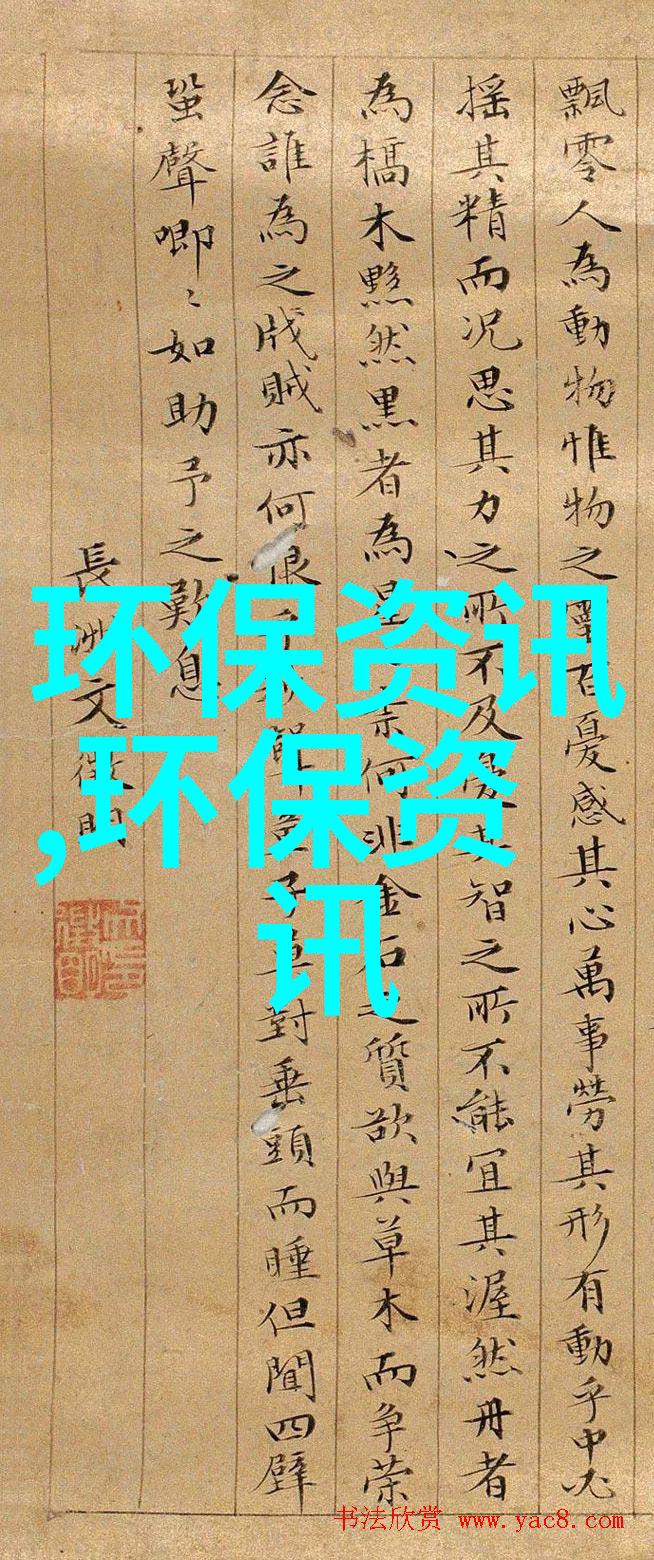 飄零人為動物惟物之靈百憂感其心萬事勞其形有動乎中必
搖其精而況思其力之所不及憂其智之所不能宜其渥然丹者
為槁木黟然黑者為星奈何非金石之質欲與草木而爭榮
念誰為之戕賊亦何恨童子莫對垂頭而睡但聞四壁
蛩聲唧〻如助予之歎息
長洲文徵明
环保资讯
,环保资
讯
书法欣赏 www.yac8.com